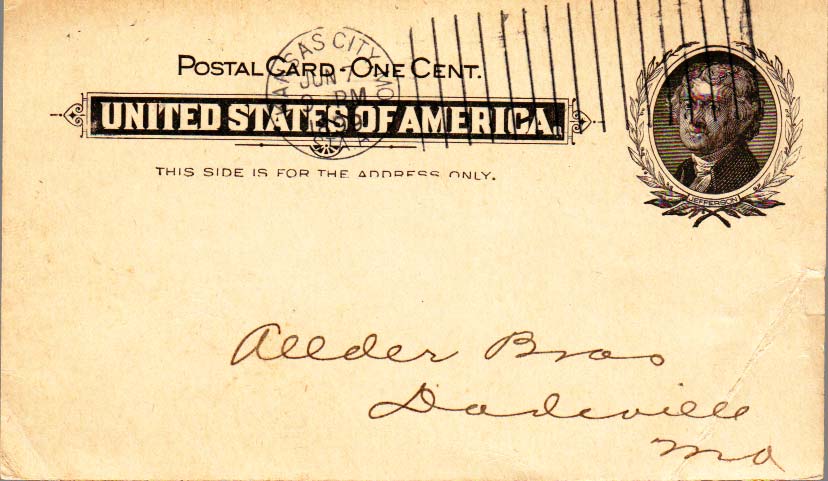 POSTAL CARD - ONE CENT.
UNITED STATES OF AMERICA.
THIS SIDE IS FOR THE ADDRESS ONLY.
KANSAS CITY, MO
JUN 7
PM
STA. A
JEFFERSON
Allder Bros
Dadeville
Mo